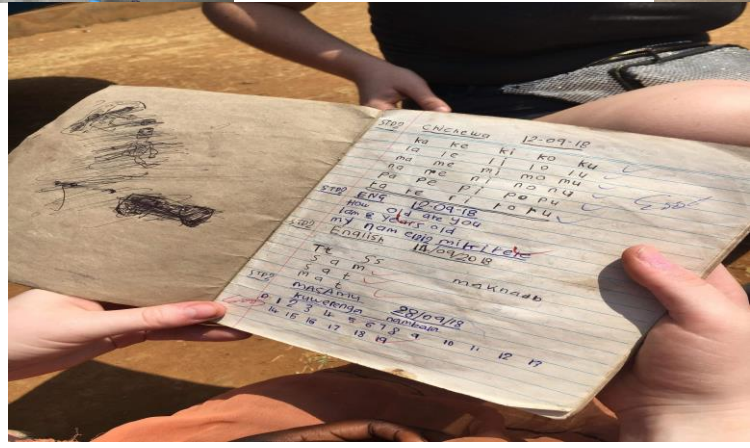 STD2 CNChewa 12-09-18
ka ke ki ko ku
la le li lo lu
ma me mi mo mu
na ne ni no nu
pa pe pi po pu
ra re ri ro ru
STD2 ENG 12-09-18
How old are you
I am 8 years old
my name is
English 14/09/2018
Tt Ss
s a m
s a t
m a t
STD2 MACAMU
kuwerenga nambala 28/09/18
0 1 2 3 4 5 6 7 8 9 10 11 12 13
14 15 16 17 18 19